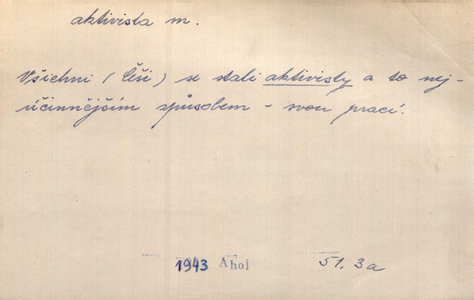 aktivista m.
Všichni (Češi) se stali aktivisty a to nej-
účinnějším způsobem - svou prací.
1943 Ahoj 51. 3a